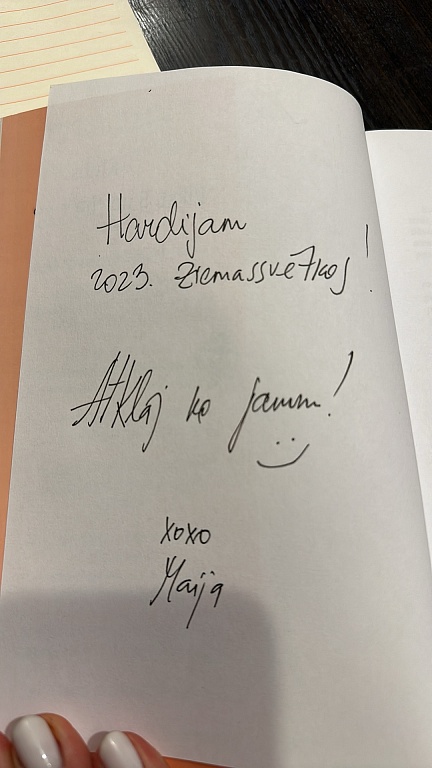 Hardijam
2023. Ziemassvētkos!
Atklāj ko jaunu!
xoxo
Maija